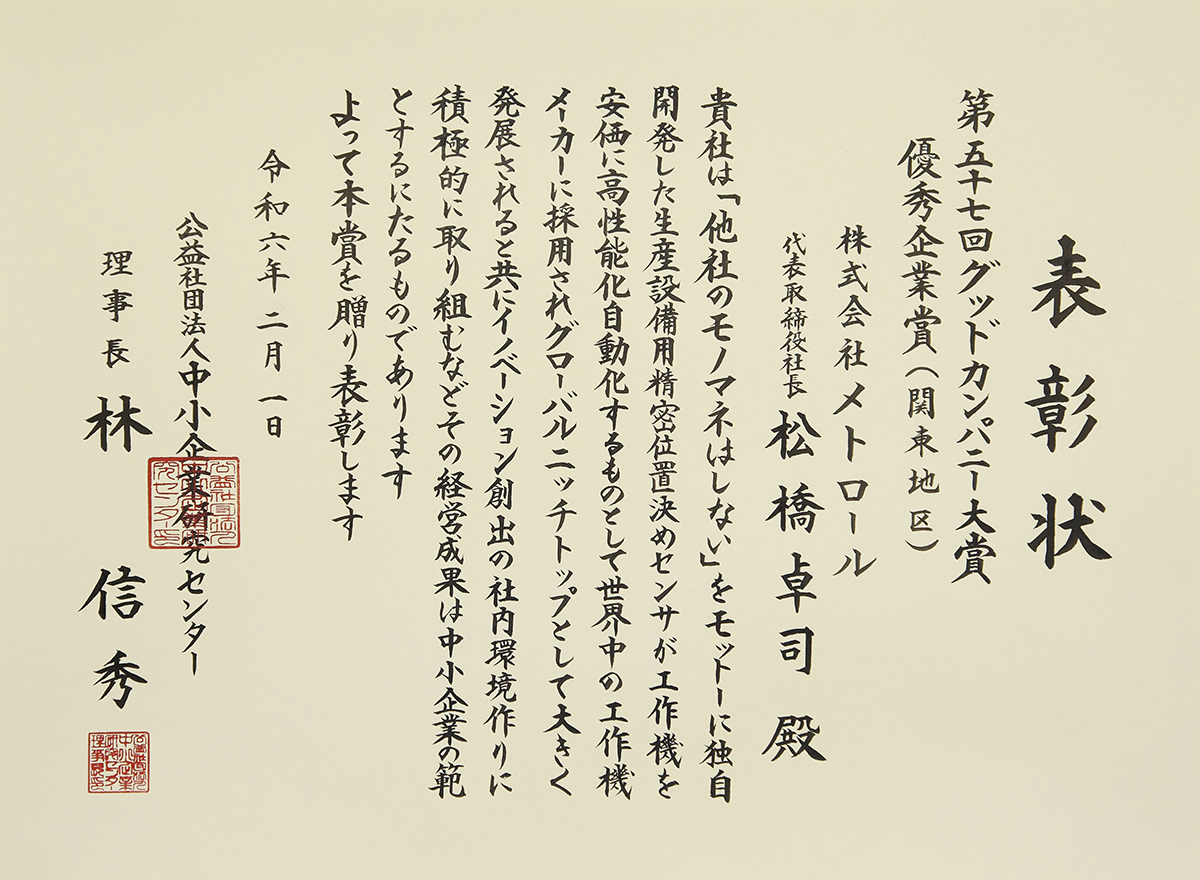 表彰状
第五十七回グッドカンパニー大賞
優秀企業賞（関東地区）
株式会社メトロール
代表取締役社長 松橋卓司 殿
貴社は「他社のモノマネはしない」をモットーに独自
開発した生産設備用精密位置決めセンサが工作機を
安価に高性能化自動化するものとして世界中の工作機
メーカーに採用されグローバルニッチトップとして大きく
発展されると共にイノベーション創出の社内環境作りに
積極的に取り組むなどその経営成果は中小企業の範
とするにたるものであります
よって本賞を贈り表彰します
令和六年二月一日
公益社団法人中小企業研究センター
理事長 林 信秀